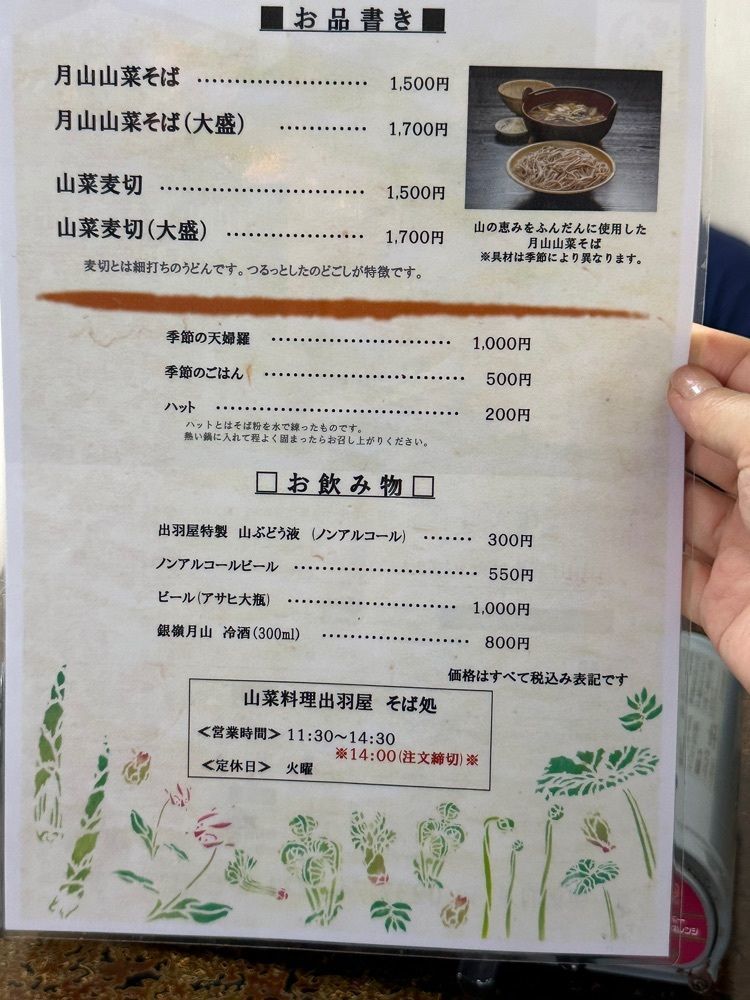 ■お品書き■
月山山菜そば ………………… 1,500円
月山山菜そば(大盛) ………… 1,700円
山菜麦切 ……………………… 1,500円
山菜麦切(大盛) ……………… 1,700円
麦切とは細打ちのうどんです。つるっとしたのどごしが特徴です。
山の恵みをふんだんに使用した
月山山菜そば
※具材は季節により異なります。
季節の天婦羅 ……………………… 1,000円
季節のごはん ……………………… 500円
ハット ……………………………… 200円
ハットとはそば粉を水で練ったものです。
熱い鍋に入れて程よく固まったらお召し上がりください。
□お飲み物□
出羽屋特製 山ぶどう液 (ノンアルコール) ……… 300円
ノンアルコールビール ……………………… 550円
ビール(アサヒ大瓶) ……………………… 1,000円
銀嶺月山 冷酒(300ml) ………………… 800円
価格はすべて税込み表記です
山菜料理出羽屋 そば処
<営業時間> 11:30～14:30
※14:00(注文締切)※
<定休日> 火曜